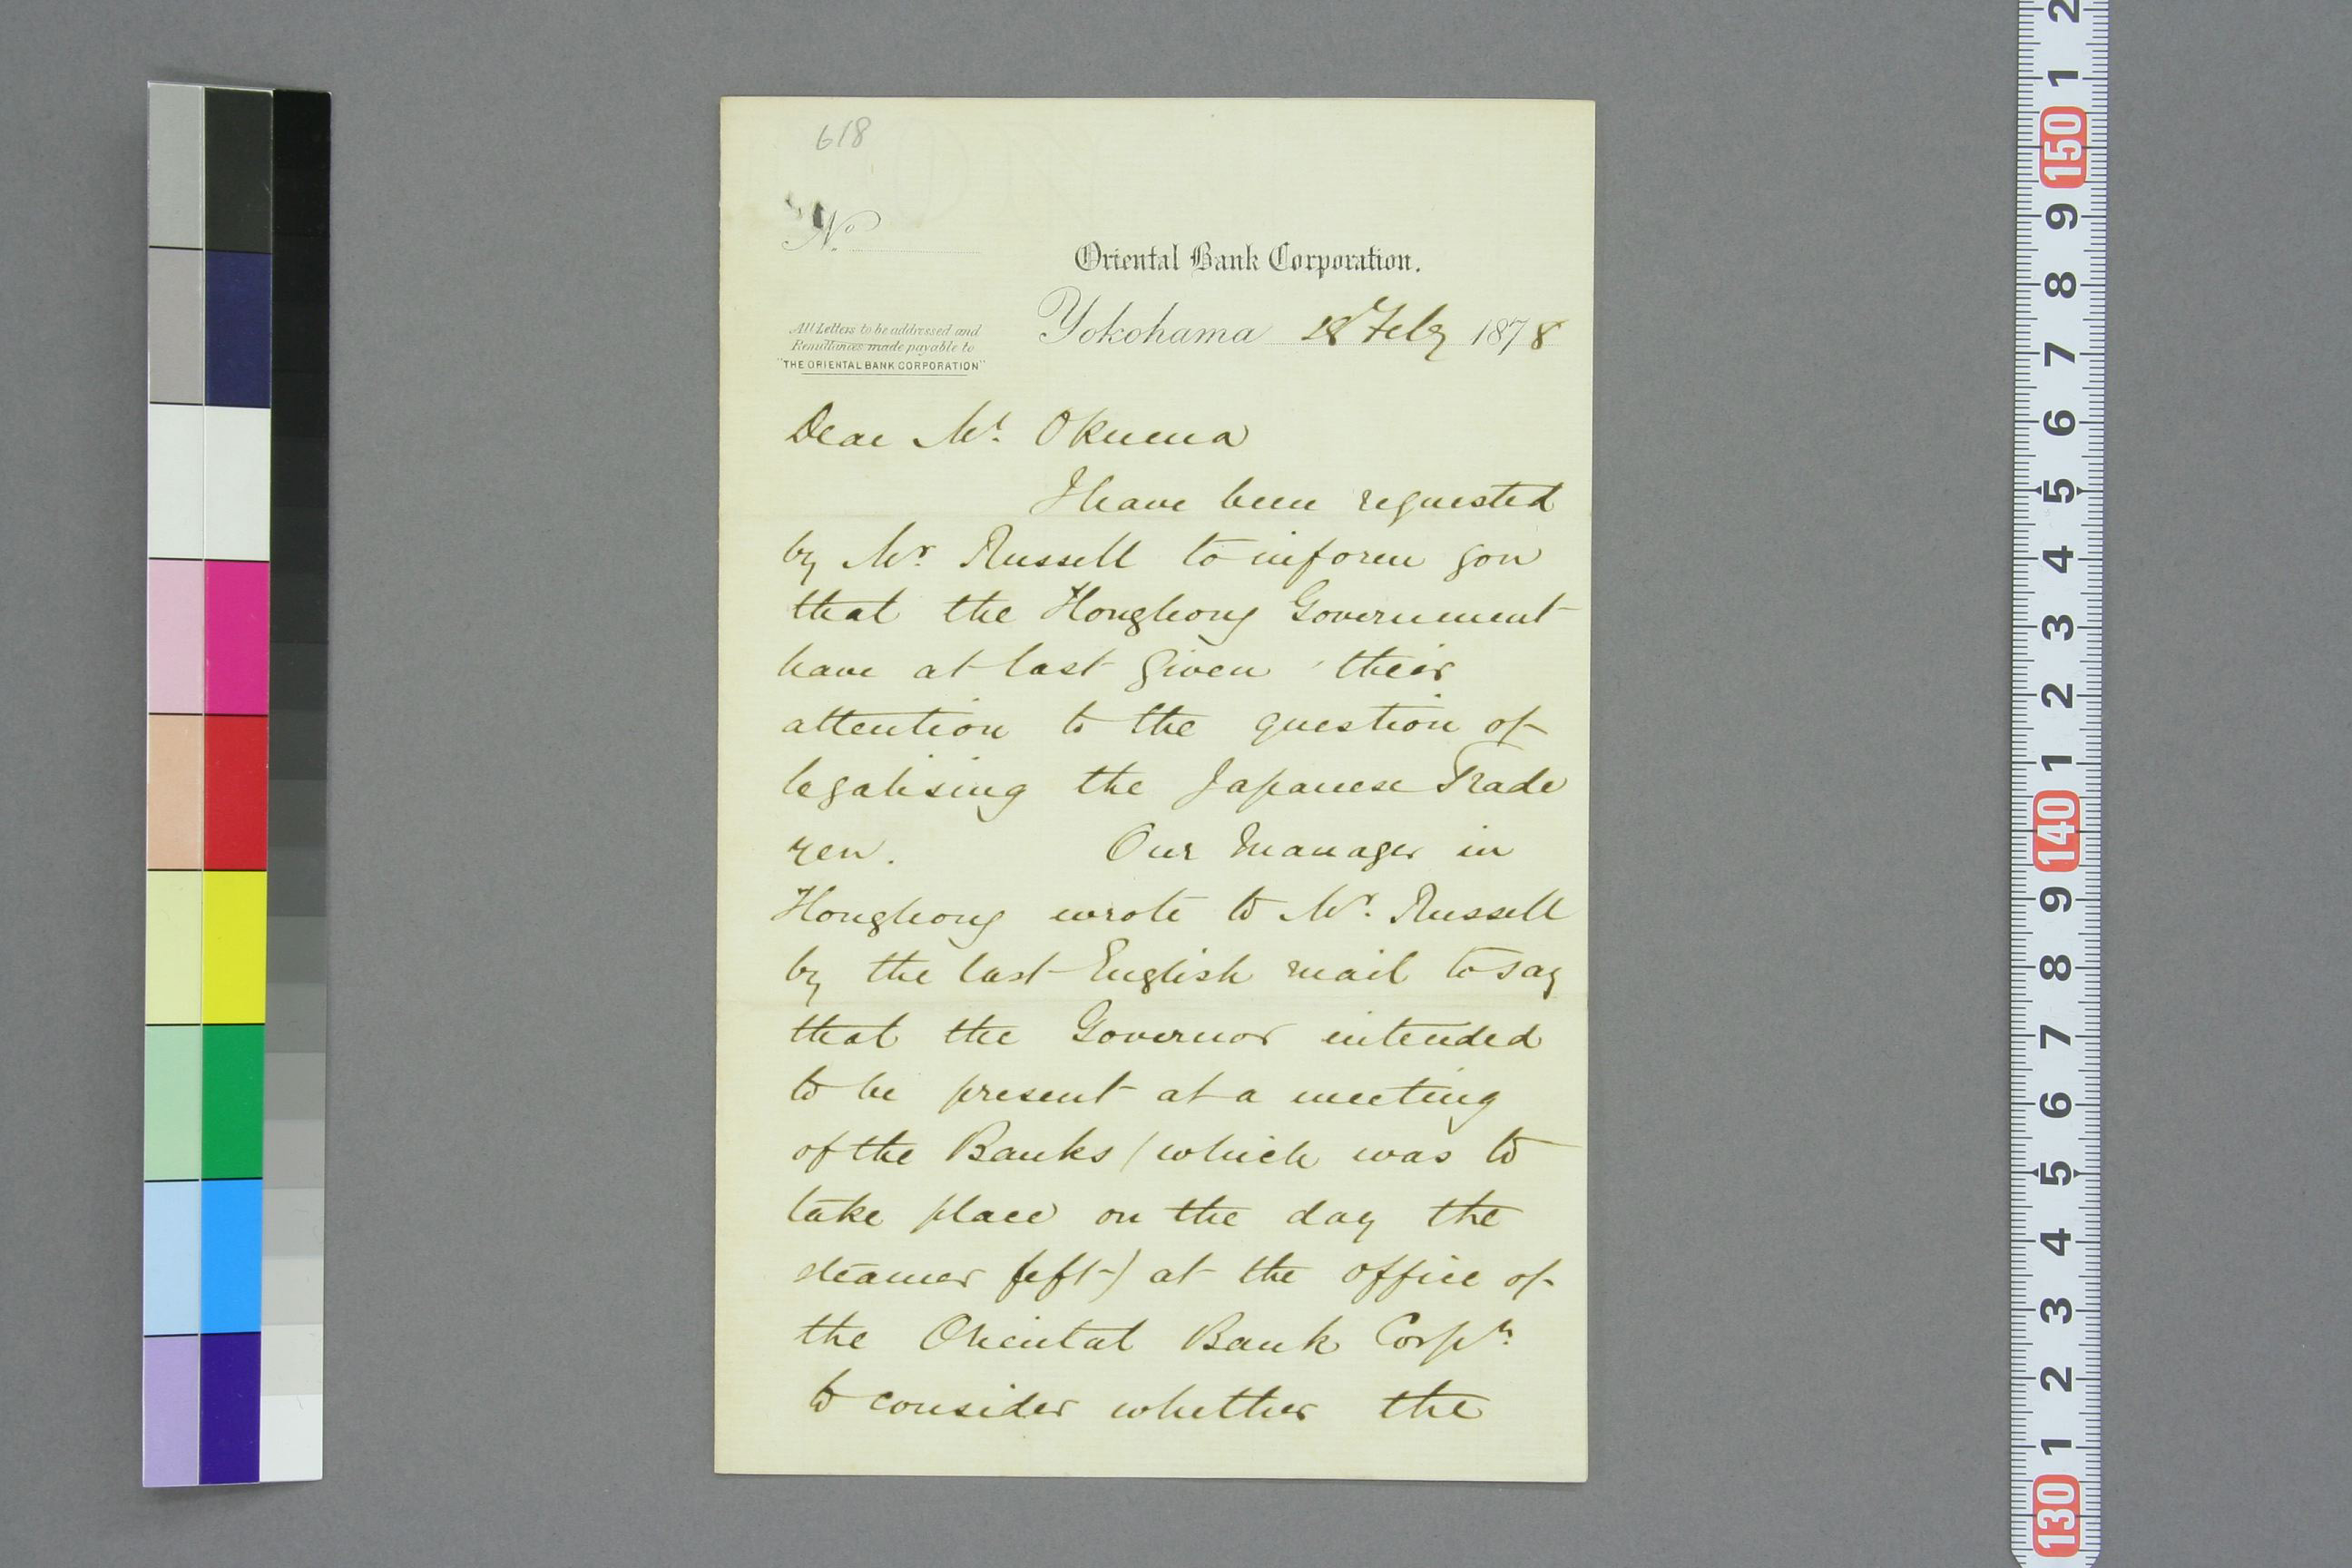 618
No.
Oriental Bank Corporation.
Yokohama 18 Feby 1878
All Letters to be addressed and
Remittances made payable to
"THE ORIENTAL BANK CORPORATION"
Dear Mr. Okuma
I have been requested
by Mr. Russell to inform you
that the Hongkong Government
have at last given their
attention to the question of
legalising the Japanese Trade
yen. Our Manager in
Hongkong wrote to Mr. Russell
by the last English mail to say
that the Governor intended
to be present at a meeting
of the Banks (which was to
take place on the day the
steamer left) at the office of
the Oriental Bank Corpn.
to consider whether the
2
1
150
9
8
7
6
5
4
3
2
1
140
9
8
7
6
5
4
3
2
1
130